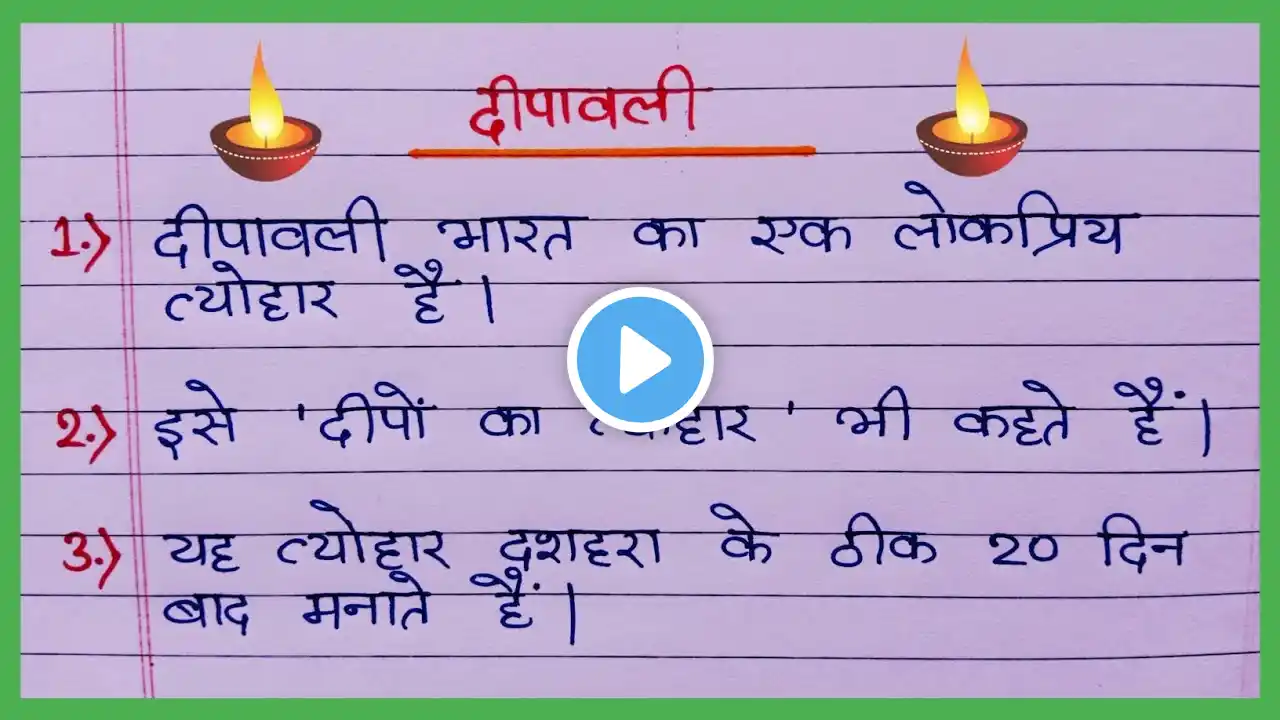 दीपावली
1.) दीपावली भारत का एक लोकप्रिय
त्योहार है।
2.) इसे 'दीपों का त्योहार' भी कहते हैं।
3.) यह त्योहार दशहरा के ठीक 20 दिन
बाद मनाते हैं।